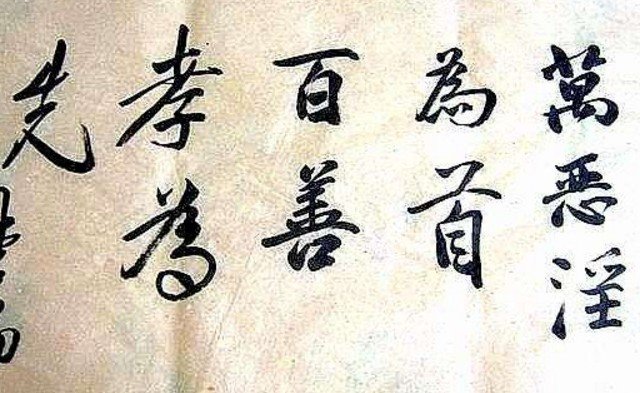 萬恶淫
為首
百善
孝為
先